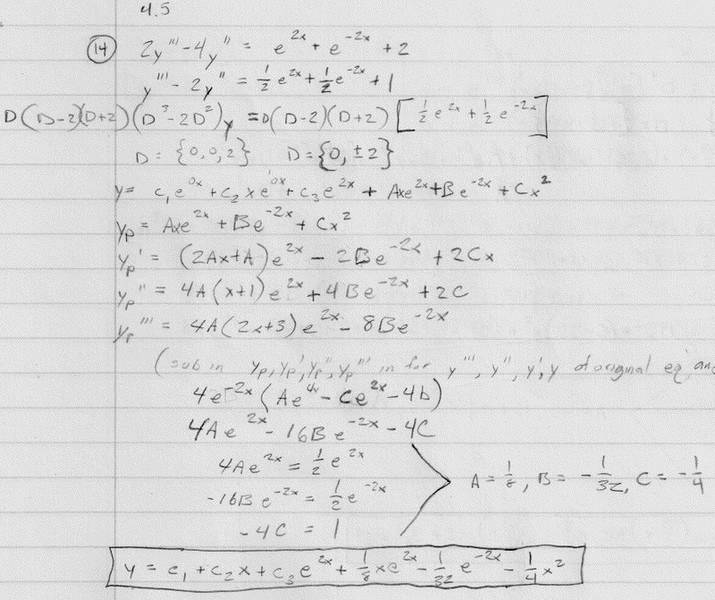 4.5
(14) 2y''' - 4y'' = e^{2x} + e^{-2x} + 2
y''' - 2y'' = \frac{1}{2} e^{2x} + \frac{1}{2} e^{-2x} + 1
D(D-2)(D+2)(D^3 - 2D^2)y = D(D-2)(D+2) [\frac{1}{2} e^{2x} + \frac{1}{2} e^{-2x}]
D = {0, 0, 2} D = {0, ±2}
y = c_1 e^{0x} + c_2 x e^{0x} + c_3 e^{2x} + Axe^{2x} + Be^{-2x} + Cx^2
y_p = Axe^{2x} + Be^{-2x} + Cx^2
y_p' = (2Ax + A)e^{2x} - 2Be^{-2x} + 2Cx
y_p'' = 4A(x+1)e^{2x} + 4Be^{-2x} + 2C
y_p''' = 4A(2x+3)e^{2x} - 8Be^{-2x}
(sub in y_p, y_p', y_p'', y_p''' in for y''', y'', y', y of original eq', and
4e^{-2x}(Ae^{4x} - Ce^{2x} - 4b)
4Ae^{2x} - 16Be^{-2x} - 4C
4Ae^{2x} = \frac{1}{2} e^{2x}
-16Be^{-2x} = \frac{1}{2} e^{-2x}
-4C = 1
A = \frac{1}{8}, B = -\frac{1}{32}, C = -\frac{1}{4}
y = c_1 + c_2 x + c_3 e^{2x} + \frac{1}{8} xe^{2x} - \frac{1}{32} e^{-2x} - \frac{1}{4} x^2